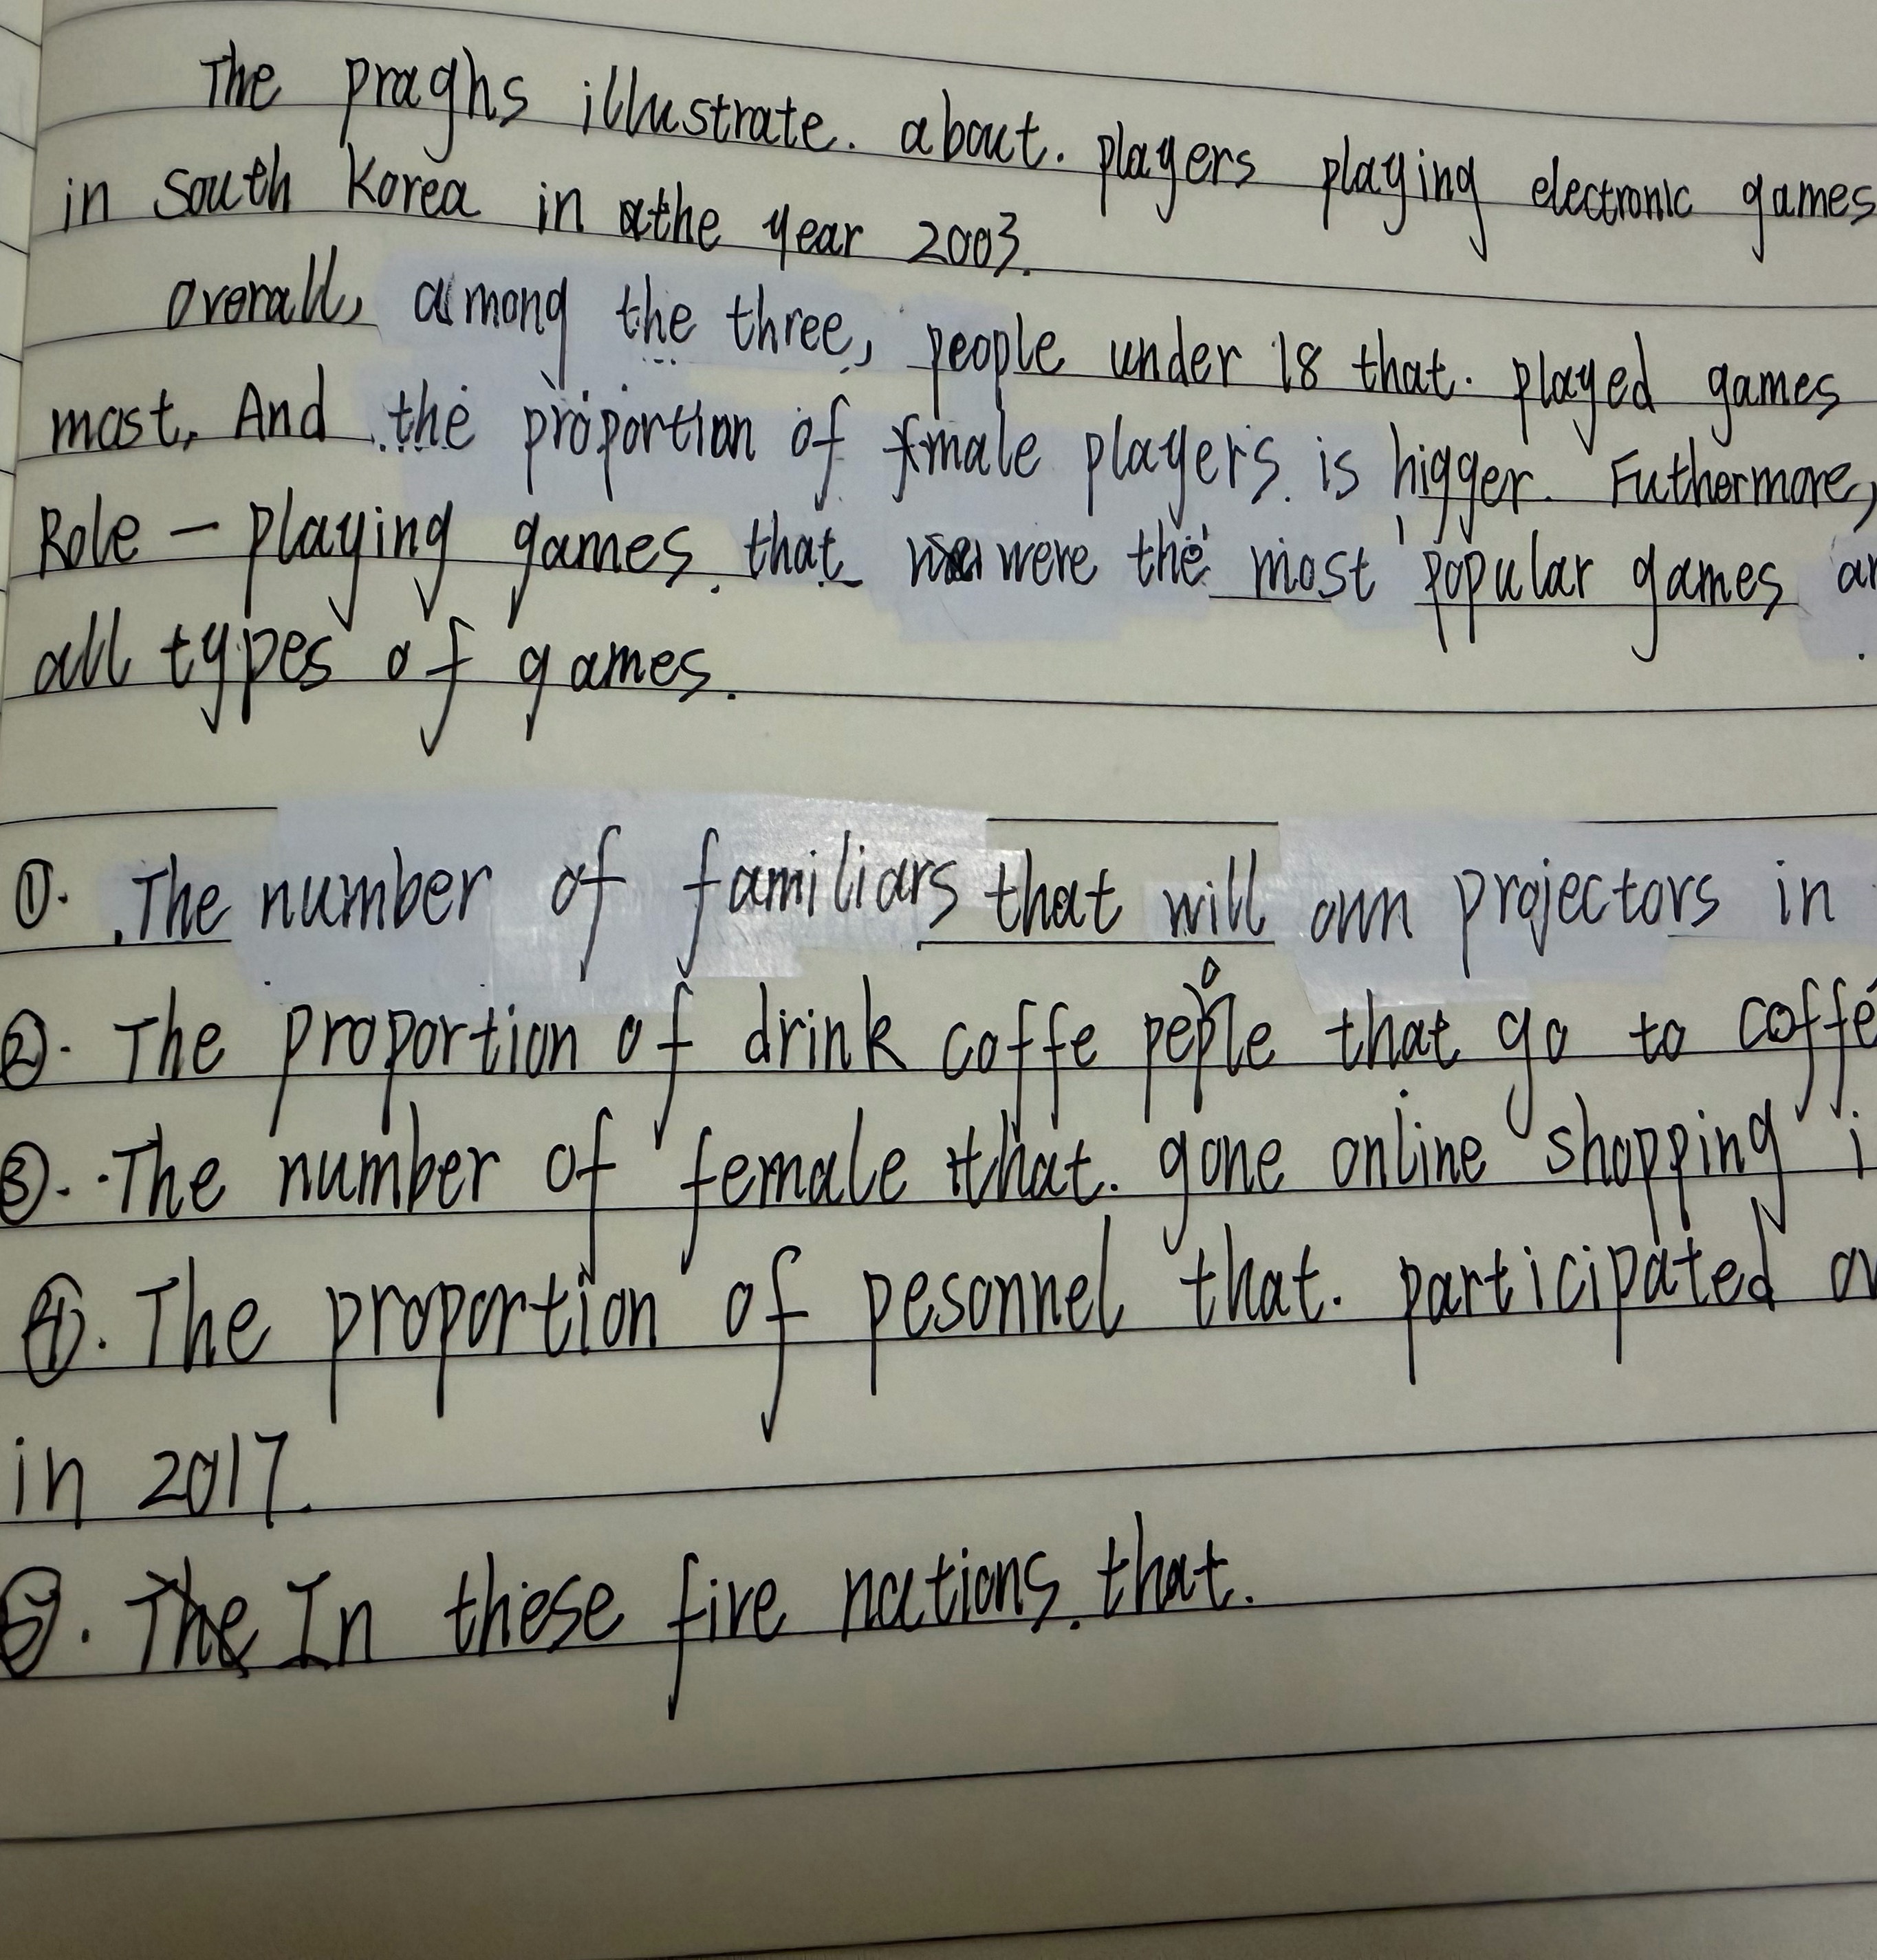 The praghs illustrate. about. players playing electronic games
in south Korea in the year 2003.
Overall, among the three, people under 18 that. played games
most. And the proportion of male players is higger. Futhermore,
Role-playing games. that were the most popular games
all types of games.
①. The number of familiars that will own projectors in
②. The proportion of drink coffe people that go to coffe
③. The number of female that. gone online shopping i
④. The proportion of pesonnel that. participated
in 2017.
⑤. The In these five nations. that.